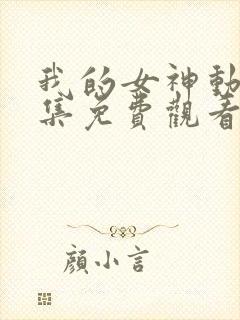 我的女神動
集免費觀看
顏小言